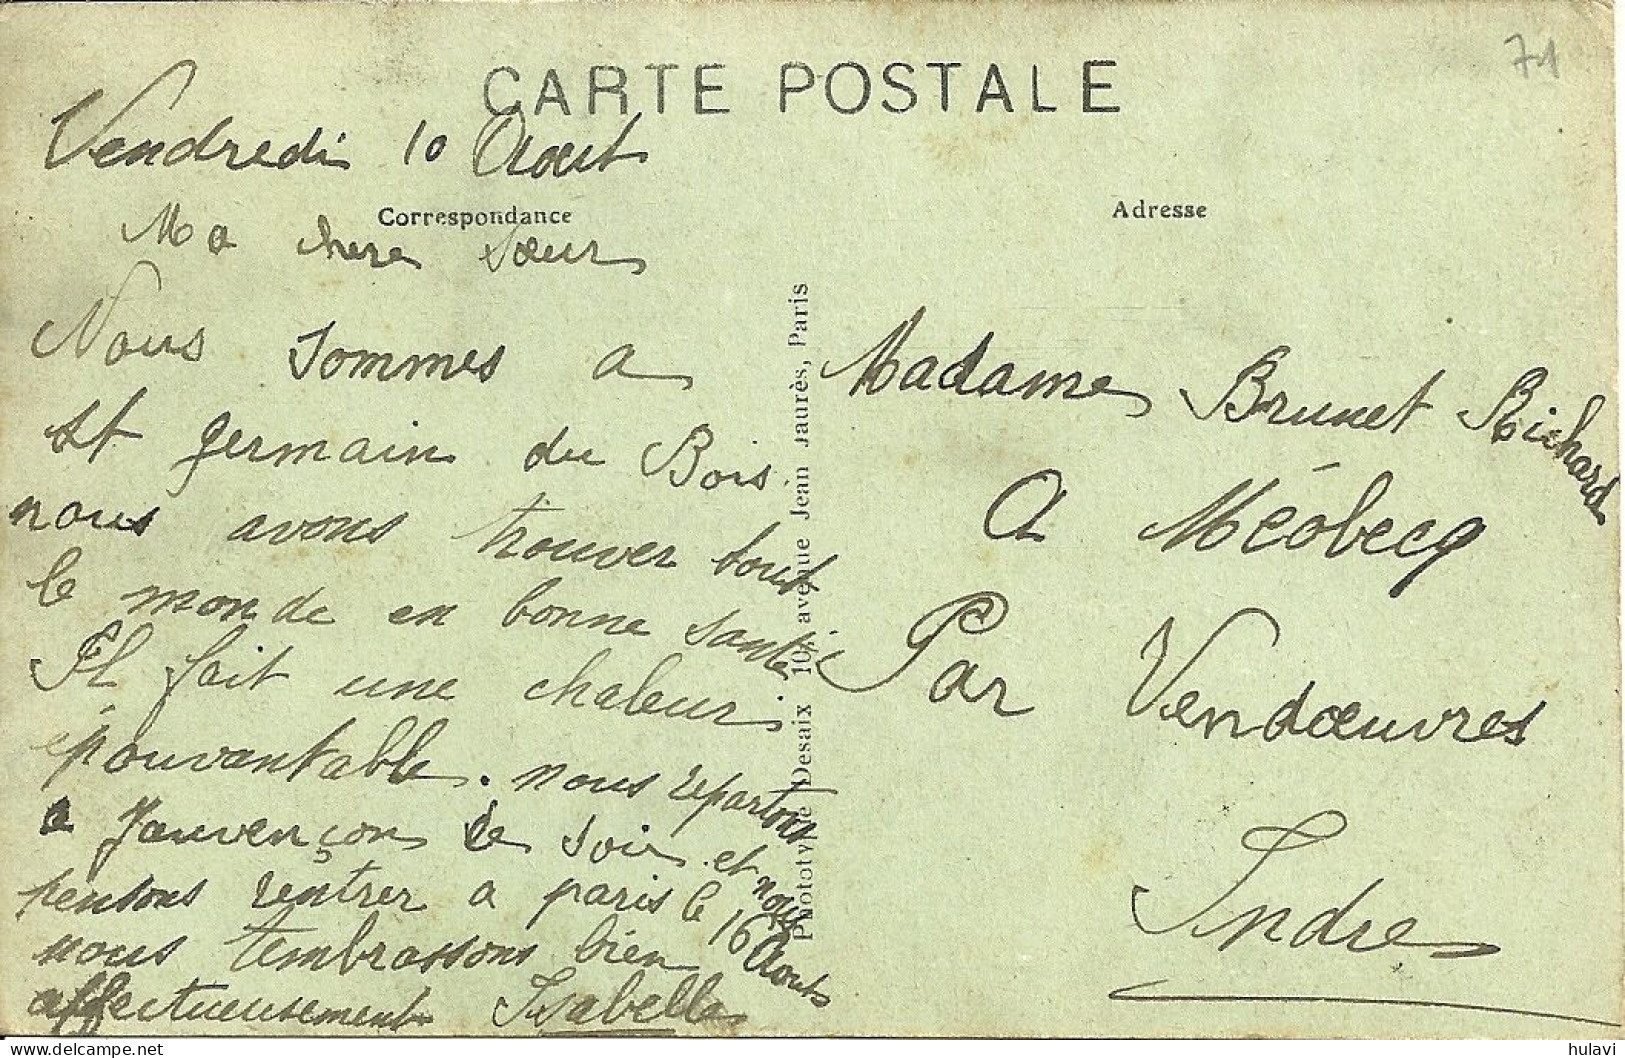 71
CARTE POSTALE
Vendredi 10 Aout
Correspondance
Ma chere Sœur
Nous sommes a
St germain du Bois
nous avons trouver tout
le monde en bonne santé
Il fait une chaleur
épouvantable. nous repartons
a Jouvençon ce soir et nous
pensons rentrer a paris le 16 Aout
nous tembrassons bien
affectueusement Isabelle
Phototypie Desaix 10, avenue Jean Jaurès, Paris
Adresse
Madame Brunet Richard
A Méobecq
Par Vendœuvres
Indre
hulavi